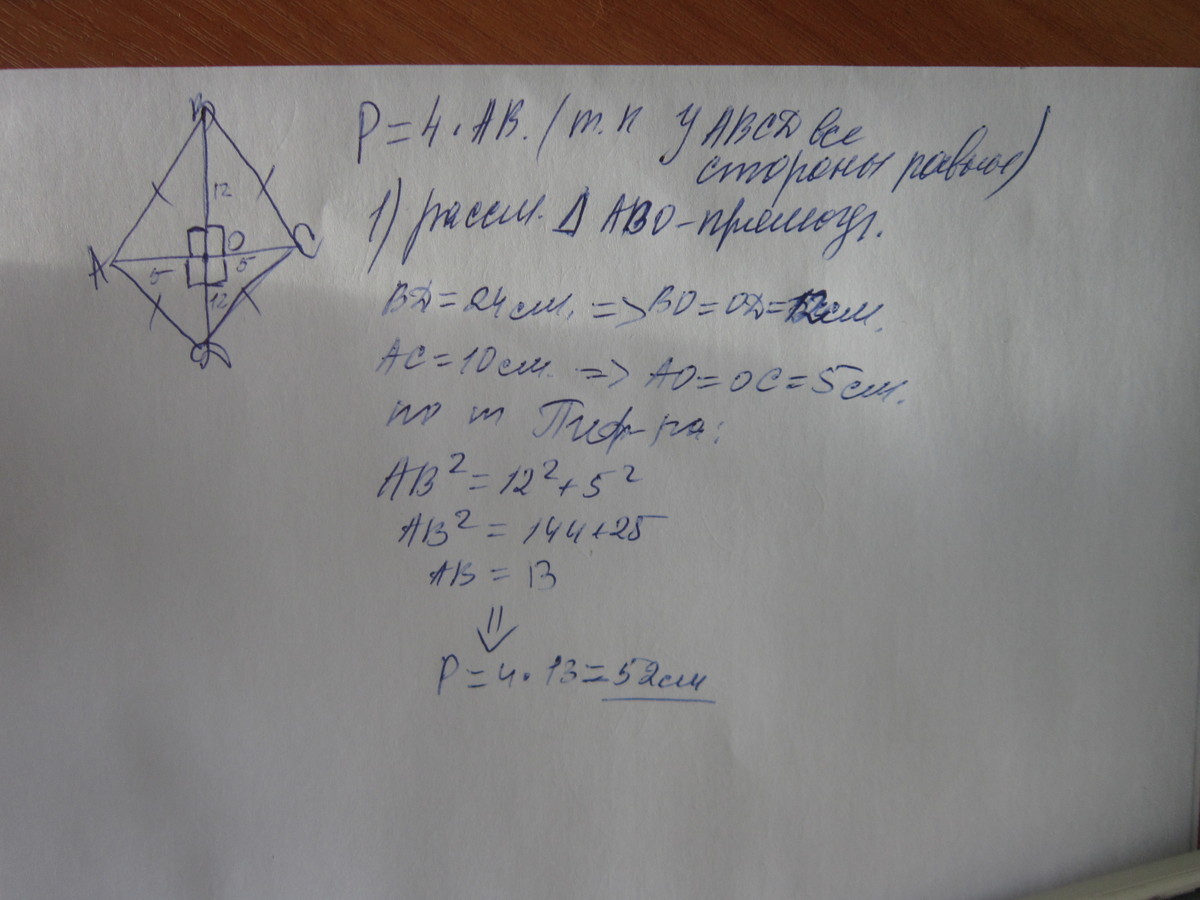 B
12
A
O
C
5
5
12
P = 4 · AB. (т.к у ABCD все
стороны равные)
1) рассм. Δ ABO - прямоуг.
BD = 24 см. => BO = OD = 12 см.
AC = 10 см. => AO = OC = 5 см.
по т Пиф-ра:
AB² = 12² + 5²
AB² = 144 + 25
AB = 13
P = 4 · 13 = 52 см